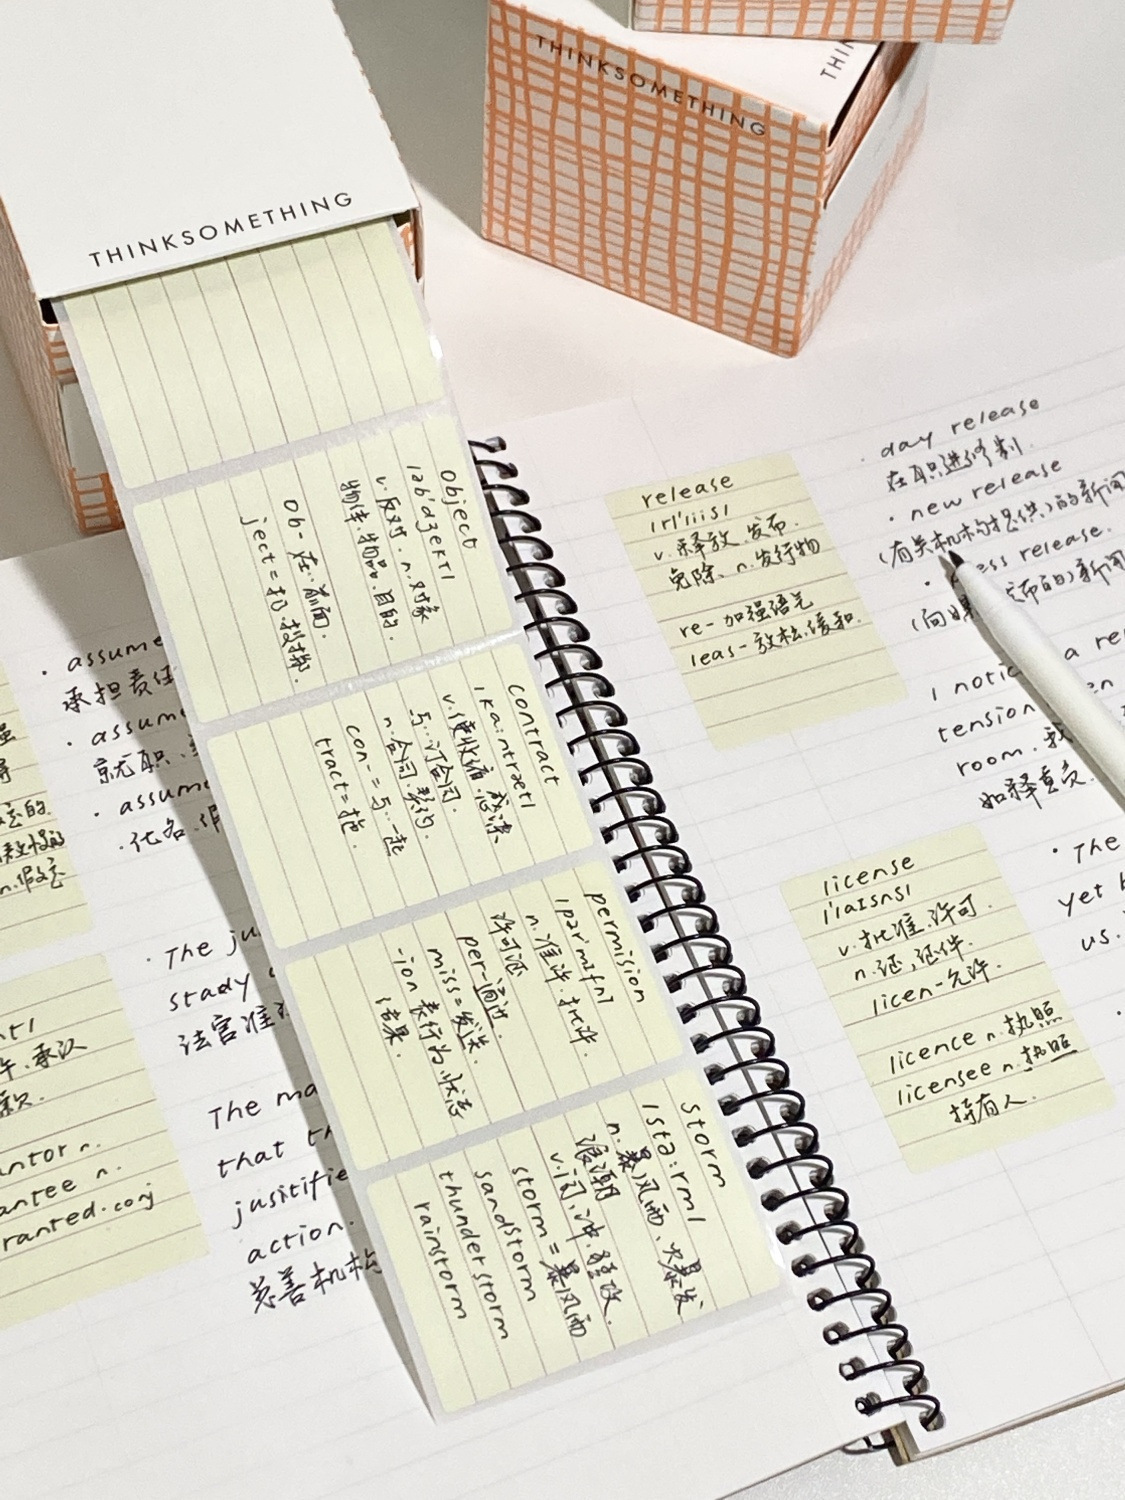 THINKSOMETHING
THINKSOMETHING
THIN
object
v.反对.n.对象
物体.物品.目的.
ob-在…前面.
ject=扔.投掷.
contract
与…订合同.
n.合同.契约.
con-=与…一起
tract=拖.
permision
n.准许.批许.
许可证
per-通过.
miss=发送.
-ion 表行为.状态
结果.
storm
n.暴风雨、爆发
浪潮
storm=暴风雨
sandstorm
thunderstorm
rainstorm
release
v.释放.发布.
免除、n.发行物
re-加强语气
leas-放松.缓和.
· day release
在职进修制.
· new release
(有关机构提供)的新闻
release.
I notic
a re
tension
room.
如释重负.
license
v.批准.许可.
n.证,证件.
licen-允许.
licence n.执照
licensee n.执照
持有人.
· The
yet
us.
· assume
承担责任
· assum
就职、
· assum
·化名.假
· The ju
stady
法官准
The ma
that th
jusitifie
action.
慈善机构
.承认
antor n.
antee n.
ranted.conj